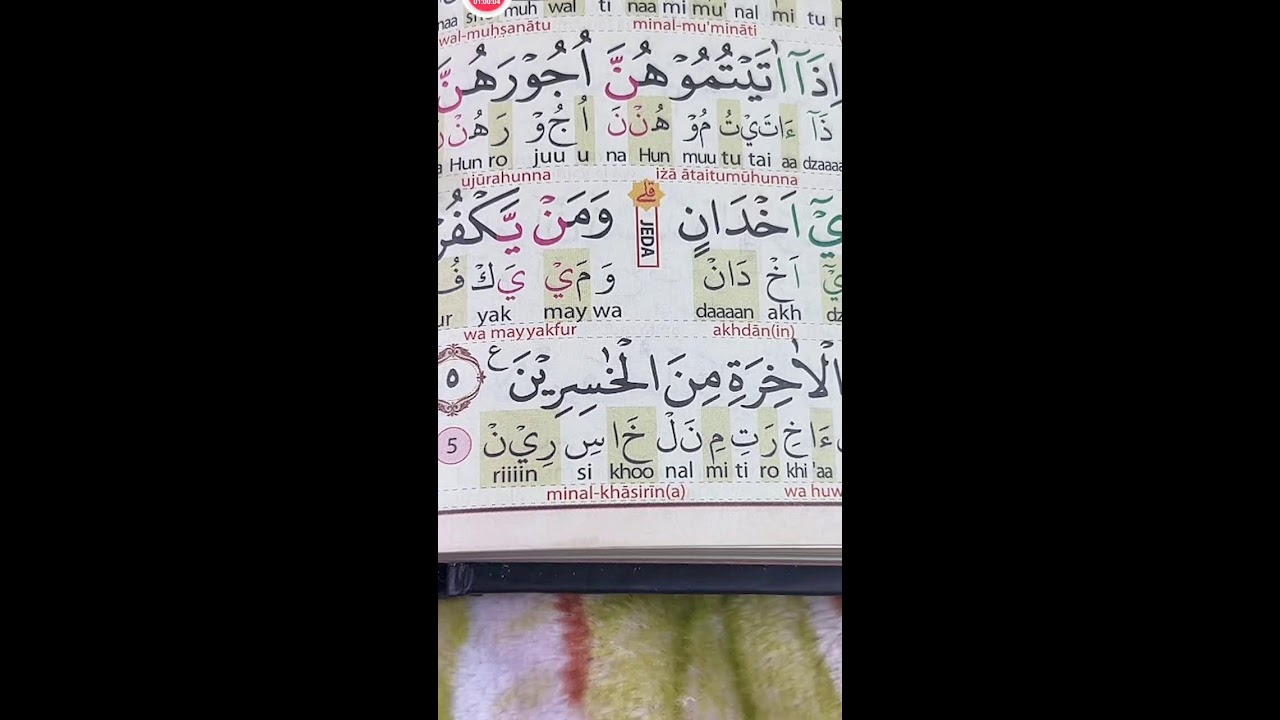 01:00:04
naa sho muh wal ti naa mi mu' nal mi tu
wal-muḥṣanātu minal-mu'mināti
اِذَآ اٰتَيْتُمُوْهُنَّ اُجُوْرَهُنَّ
ذَآ ءَاتَيْتُ مُوْ هُنْنَ اُجُوْ رَ هُنْ
Hun ro juu u na Hun muu tu tai aa dzaaaa
ujūrahunna iżā ātaitumūhunna
يْٓ اَخْدَانٍ قلے وَمَنْ يَّكْفُرْ
JEDA
يْ اَخْ دَانْ وَ مَيْ يَكْ فُ
ur yak may wa daaaan akh dz
wa may yakfur akhdān(in)
الْاٰخِرَةِ مِنَ الْخٰسِرِيْنَ ع ٥
ءَاخِ رَتِ مِ نَلْ خَا سِ رِيْنْ
5 riiiin si khoo nal mi ti ro khi 'aa
minal-khāsirīn(a) wa huw